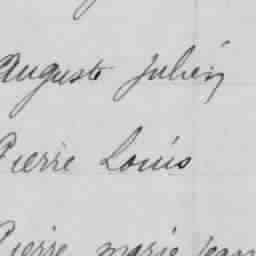 Auguste Julien
Pierre Louis
Pierre marie Jean